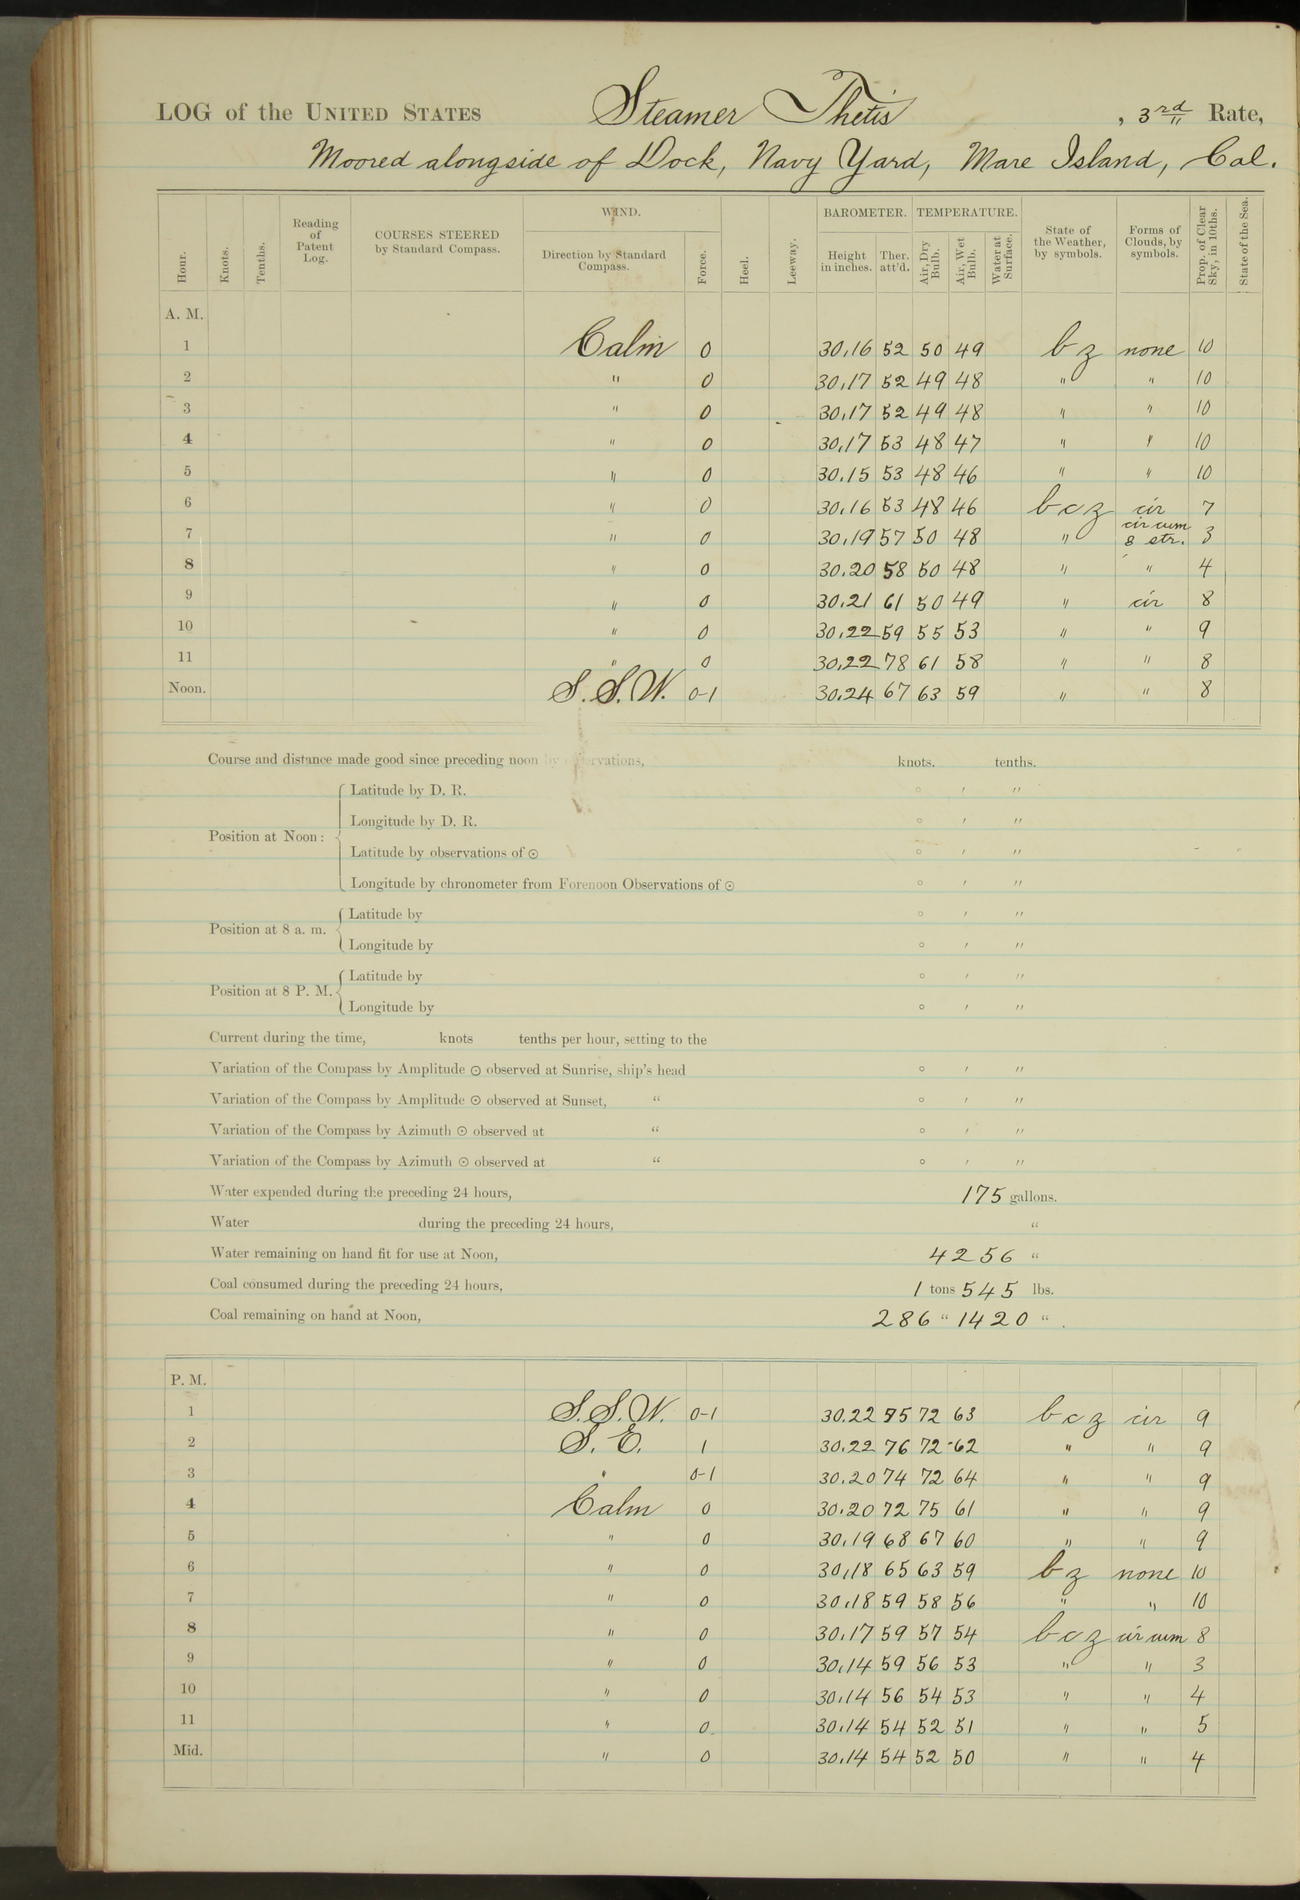 LOG of the UNITED STATES Steamer Thetis, 3rd Rate,
Moored alongside of Dock, Navy Yard, Mare Island, Cal.
Hour. Knots. Tenths. Reading of Patent Log. COURSES STEERED by Standard Compass. WIND. Direction by Standard Compass. Force. Heel. Leeway. BAROMETER. Height in inches. Ther. att'd. TEMPERATURE. Air, Dry Bulb. Air, Wet Bulb. Water at Surface. State of the Weather, by symbols. Forms of Clouds, by symbols. Prop. of Clear Sky, in 10ths. State of the Sea.
A. M.
1 Calm 0 30.16 52 50 49 b z none 10
2 " 0 30.17 52 49 48 " " 10
3 " 0 30.17 52 49 48 " " 10
4 " 0 30.17 53 48 47 " " 10
5 " 0 30.15 53 48 46 " " 10
6 " 0 30.16 53 48 46 b c z cir 7
7 " 0 30.19 57 50 48 " cir cum & str. 3
8 " 0 30.20 58 50 48 " " 4
9 " 0 30.21 61 50 49 " cir 8
10 " 0 30.22 59 55 53 " " 9
11 " 0 30.22 78 61 58 " " 8
Noon. S.S.W. 0-1 30.24 67 63 59 " " 8
Course and distance made good since preceding noon by observations, knots. tenths.
Position at Noon:
Latitude by D. R. ° ′ ″
Longitude by D. R. ° ′ ″
Latitude by observations of ☉ ° ′ ″
Longitude by chronometer from Forenoon Observations of ☉ ° ′ ″
Position at 8 a. m.
Latitude by ° ′ ″
Longitude by ° ′ ″
Position at 8 P. M.
Latitude by ° ′ ″
Longitude by ° ′ ″
Current during the time, knots tenths per hour, setting to the
Variation of the Compass by Amplitude ☉ observed at Sunrise, ship's head ° ′ ″
Variation of the Compass by Amplitude ☉ observed at Sunset, " ° ′ ″
Variation of the Compass by Azimuth ☉ observed at " ° ′ ″
Variation of the Compass by Azimuth ☉ observed at " ° ′ ″
Water expended during the preceding 24 hours, 175 gallons.
Water during the preceding 24 hours, "
Water remaining on hand fit for use at Noon, 4256 "
Coal consumed during the preceding 24 hours, 1 tons 545 lbs.
Coal remaining on hand at Noon, 286 " 1420 "
P. M.
1 S.S.W. 0-1 30.22 75 72 63 b c z cir 9
2 S. E. 1 30.22 76 72 62 " " 9
3 " 0-1 30.20 74 72 64 " " 9
4 Calm 0 30.20 72 75 61 " " 9
5 " 0 30.19 68 67 60 " " 9
6 " 0 30.18 65 63 59 b z none 10
7 " 0 30.18 59 58 56 " " 10
8 " 0 30.17 59 57 54 b c z cir cum 8
9 " 0 30.14 59 56 53 " " 3
10 " 0 30.14 56 54 53 " " 4
11 " 0 30.14 54 52 51 " " 5
Mid. " 0 30.14 54 52 50 " " 4